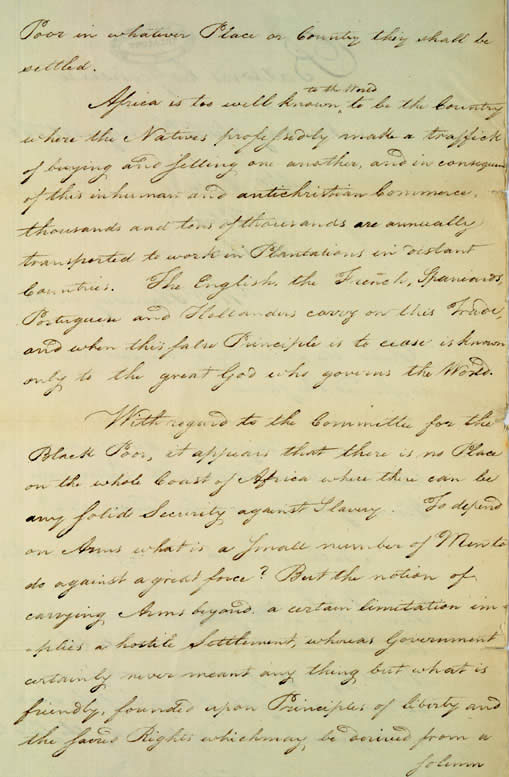 Poor in whatever Place or Country they shall be
settled.
Africa is too well known to the World to be the Country
where the Natives professedly make a traffick
of buying and selling one another, and in consequence
of this inhuman and antichristian Commerce,
thousands and tens of thousands are annually
transported to work in Plantations in distant
Countries. The English, the French, Spaniards,
Portuguese and Hollanders carry on this Trade,
and when this false Principle is to cease is known
only to the great God who governs the World.
With regard to the Committee for the
Black Poor, it appears that there is no Place
on the whole Coast of Africa where there can be
any solid Security against Slavery. To depend
on Arms what is a small number of Men to
do against a great force? But the notion of
carrying Arms beyond a certain limitation im-
-plies a hostile Settlement, whereas Government
certainly never meant any thing but what is
friendly, founded upon Principles of liberty and
the sacred Rights which may be derived from a
solemn